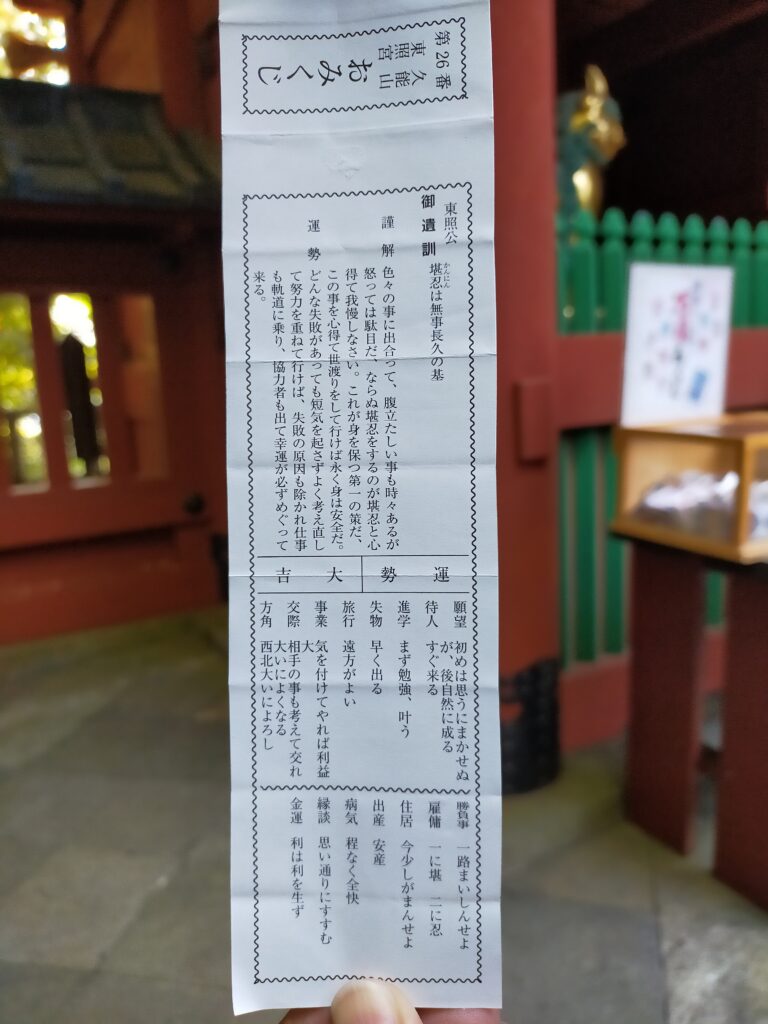 第26番
久能山
東照宮
おみくじ
東照公
御遺訓
堪忍は無事長久の基
かんにん
謹解
色々の事に出合って、腹立たしい事も時々あるが
怒っては駄目だ、ならぬ堪忍をするのが堪忍と心
得て我慢しなさい。これが身を保つ第一の策だ、
この事を心得て世渡りをして行けば永く身は安全だ。
運勢
どんな失敗があっても短気を起さずよく考え直し
て努力を重ねて行けば、失敗の原因も除かれ仕事
も軌道に乗り、協力者も出て幸運が必ずめぐって
来る。
運勢
大吉
願望 初めは思うにまかせぬ
が、後自然に成る
待人 すぐ来る
進学 まず勉強、叶う
失物 早く出る
旅行 遠方がよい
事業 気を付けてやれば利益
大
交際 相手の事も考えて交れ
大いによくなる
方角 西北大いによろし
勝負事 一路まいしんせよ
雇傭 一に堪 二に忍
住居 今少しがまんせよ
出産 安産
病気 程なく全快
縁談 思い通りにすすむ
金運 利は利を生ず